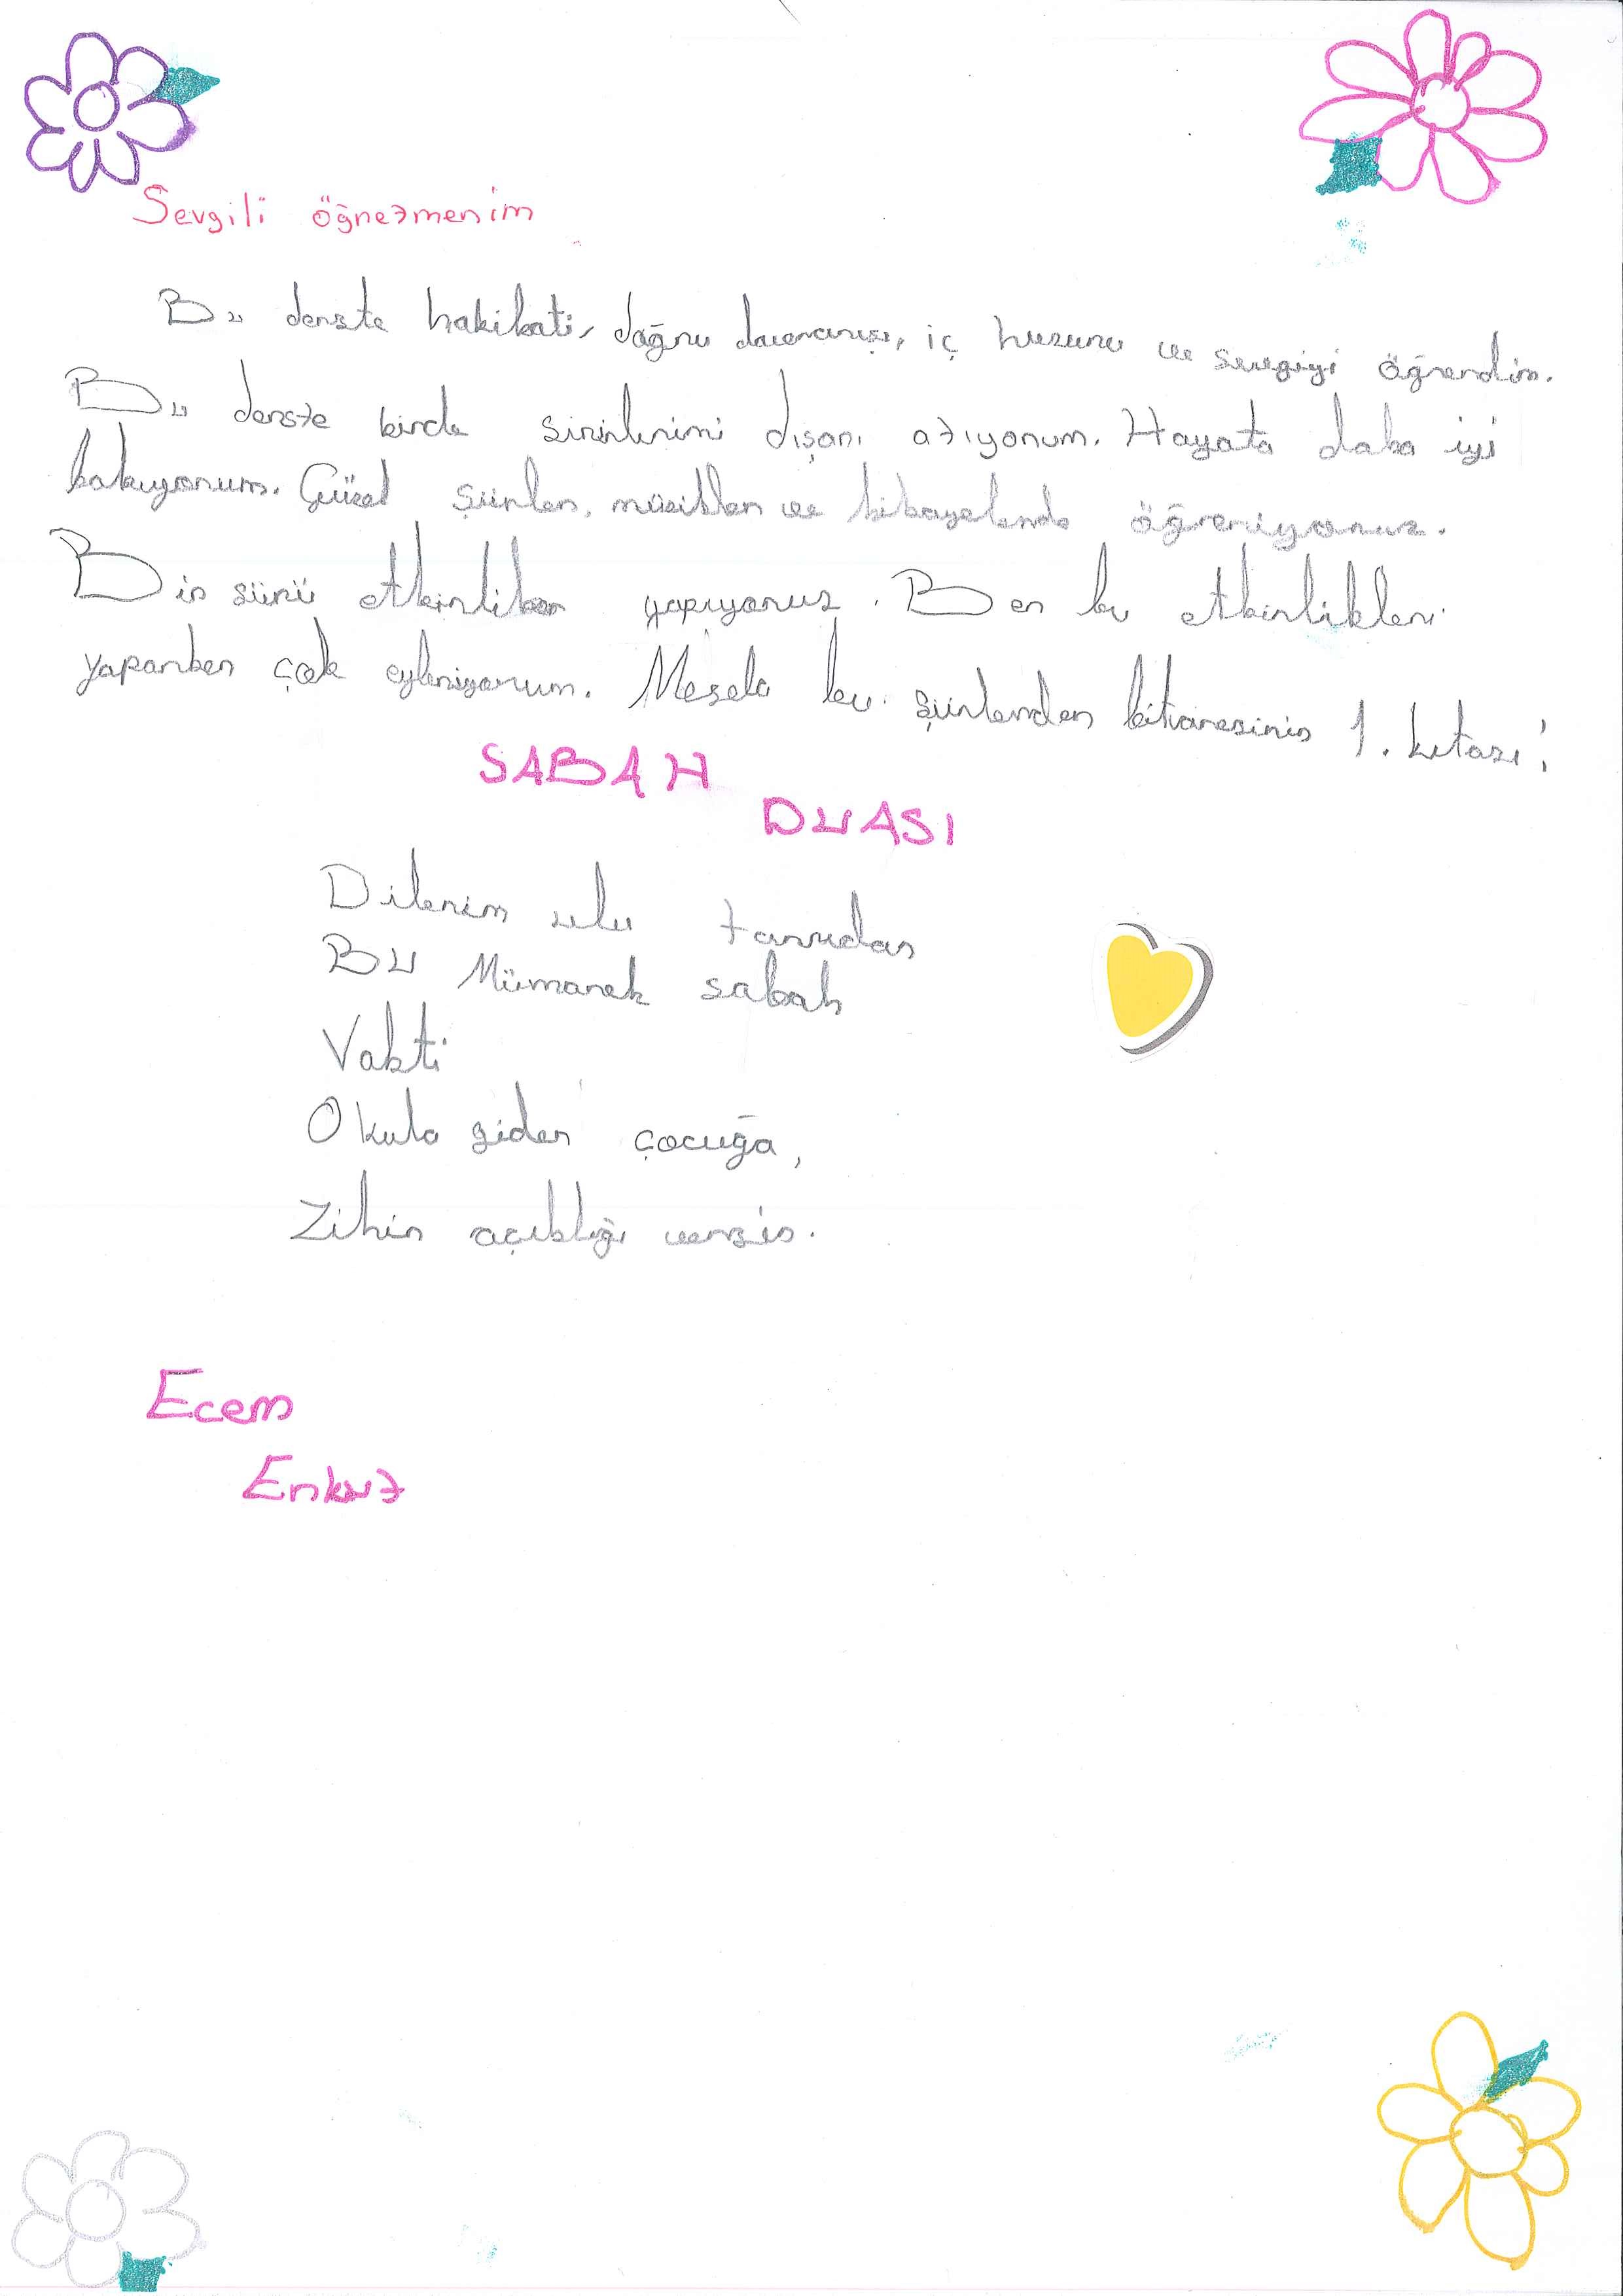 Sevgili öğretmenim
Bu derste hakikati, doğru davranışı, iç huzuru ve sevegiyi öğrendim.
Bu derste birde sinirlerimi dışarı atıyorum. Hayata daha iyi
bakıyorum. Güzel şiirler, müzikler ve hikayelerde öğreniyoruz.
Bir sürü etkinlikler yapıyoruz. Ben bu etkinlikleri
yaparken çok eyleniyorum. Mesela bu şiirlerden bitanesinin 1. kıtası:
SABAH
DUASI
Dilerim ulu tanrıdan
Bu Mümarek sabah
Vakti
Okula giden çocuğa,
Zihin açıklığı versin.
Ecem
Erkut